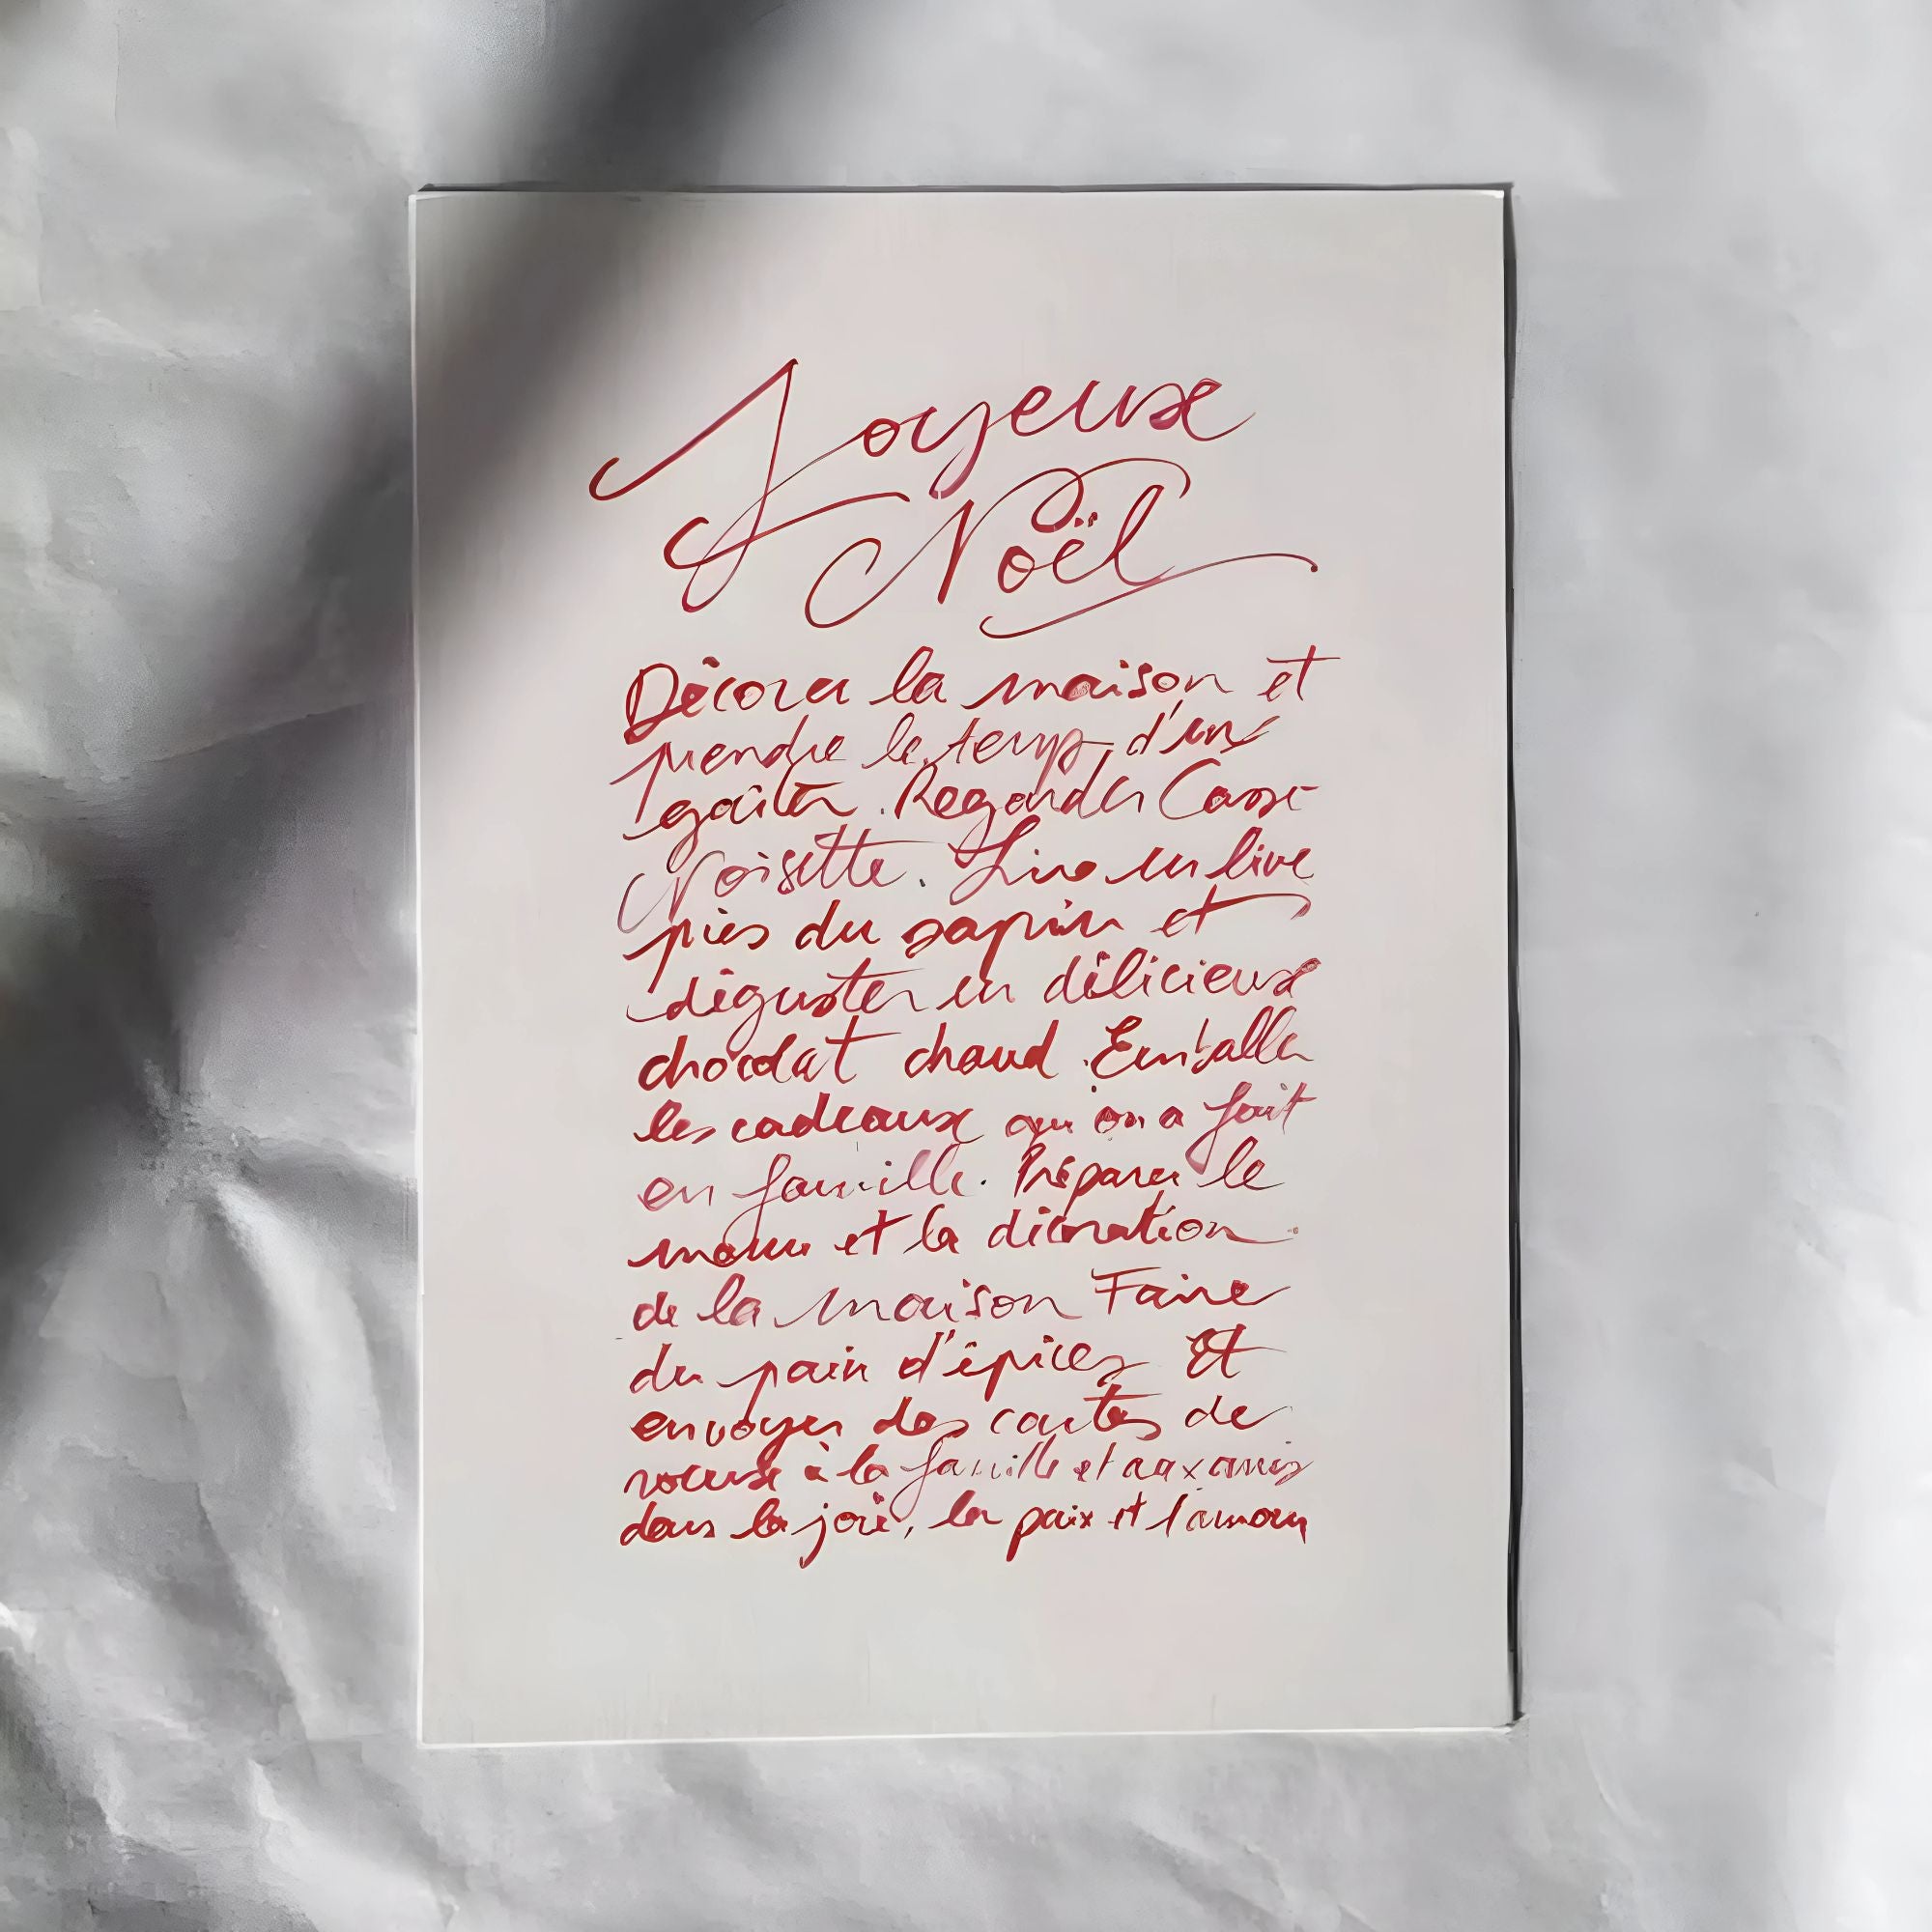 Joyeux
Noël
Décorer la maison et
prendre le temps d'un
goûter. Regarder Casse-
Noisette. Lire un livre
près du sapin et
déguster un délicieux
chocolat chaud. Emballer
les cadeaux qu'on a fait
en famille. Préparer le
menu et la décoration
de la maison Faire
du pain d'épices Et
envoyer des cartes de
voeux à la famille et aux amis
dans la joie, la paix et l'amour